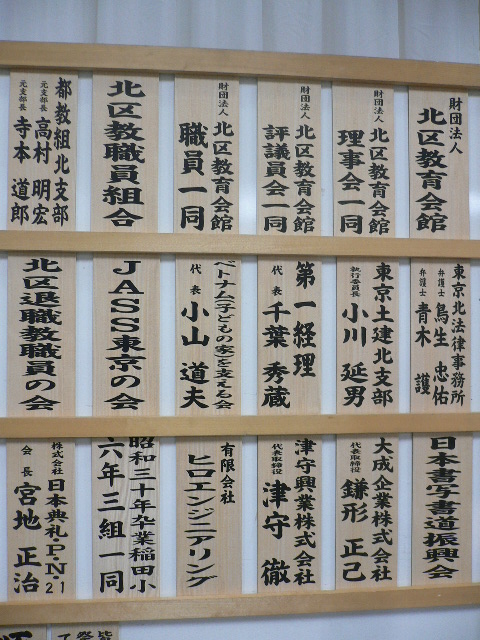 財団法人
北区教育会館
財団法人
北区教育会館
理事会一同
財団法人
北区教育会館
評議員会一同
財団法人
北区教育会館
職員一同
北区教職員組合
都教組北支部
元支部長 高村 明宏
元支部長 寺本 道郎
東京北法律事務所
弁護士 鳥生 忠佑
弁護士 青木 護
東京土建北支部
執行委員長 小川 延男
第一経理
代表 千葉 秀蔵
ベトナム「子どもの家」を支える会
代表 小山 道夫
JASS東京の会
北区退職教職員の会
日本書写書道振興会
大成企業株式会社
代表取締役 鎌形 正己
津守興業株式会社
代表取締役 津守 徹
有限会社
ヒロエンジニアリング
昭和三十年卒業稲田小
六年三組一同
株式会社 日本典礼・P・N・1
2
会長 宮地 正治